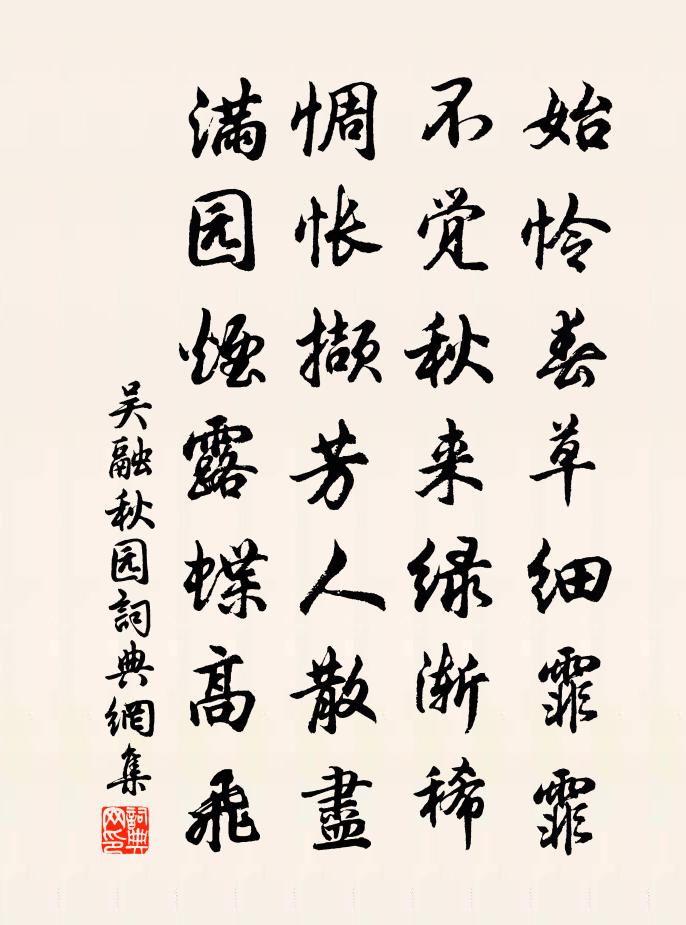 始怜春草细霏霏
不觉秋来绿渐稀
惆怅撷芳人散盡
满园煙露蝶高飛
吴融秋园詞典網集
詞典
网